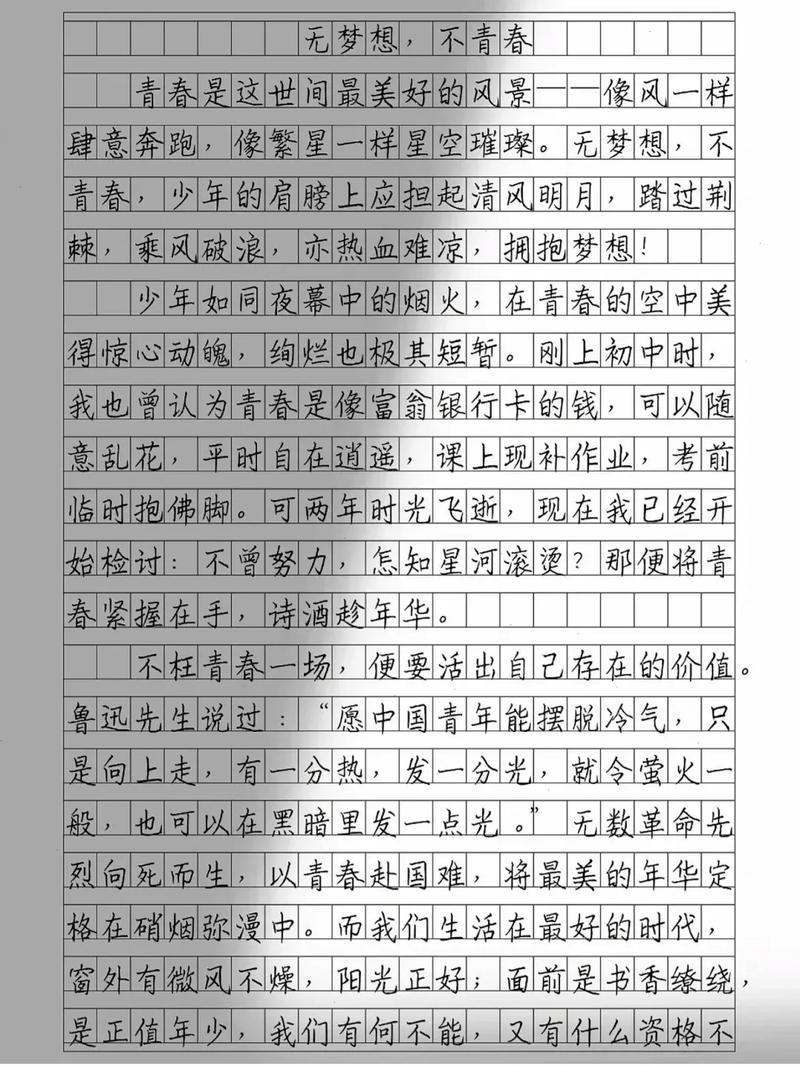 无梦想，不青春
青春是这世间最美好的风景——像风一样
肆意奔跑，像繁星一样星空璀璨。无梦想，不
青春，少年的肩膀上应担起清风明月，踏过荆
棘，乘风破浪，亦热血难凉，拥抱梦想！
少年如同夜幕中的烟火，在青春的空中美
得惊心动魄，绚烂也极其短暂。刚上初中时，
我也曾认为青春是像富翁银行卡的钱，可以随
意乱花，平时自在逍遥，课上现补作业，考前
临时抱佛脚。可两年时光飞逝，现在我已经开
始检讨：不曾努力，怎知星河滚烫？那便将青
春紧握在手，诗酒趁年华。
不枉青春一场，便要活出自己存在的价值。
鲁迅先生说过：“愿中国青年能摆脱冷气，只
是向上走，有一分热，发一分光，就令萤火一
般，也可以在黑暗里发一点光。”无数革命先
烈向死而生，以青春赴国难，将最美的年华定
格在硝烟弥漫中。而我们生活在最好的时代，
窗外有微风不燥，阳光正好；面前是书香缭绕，
是正值年少，我们有何不能，又有什么资格不